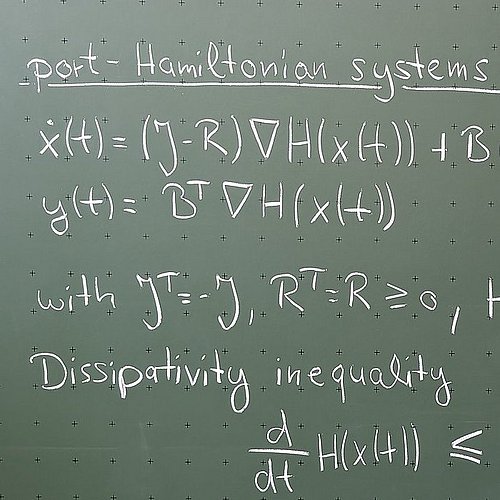 port-Hamiltonian systems
ẋ(t) = (J-R)∇H(x(t)) + B
y(t) = Bᵀ∇H(x(t))
with Jᵀ=-J, Rᵀ=R ≥ 0, H
Dissipativity inequality
d/dt H(x(t)) ≤